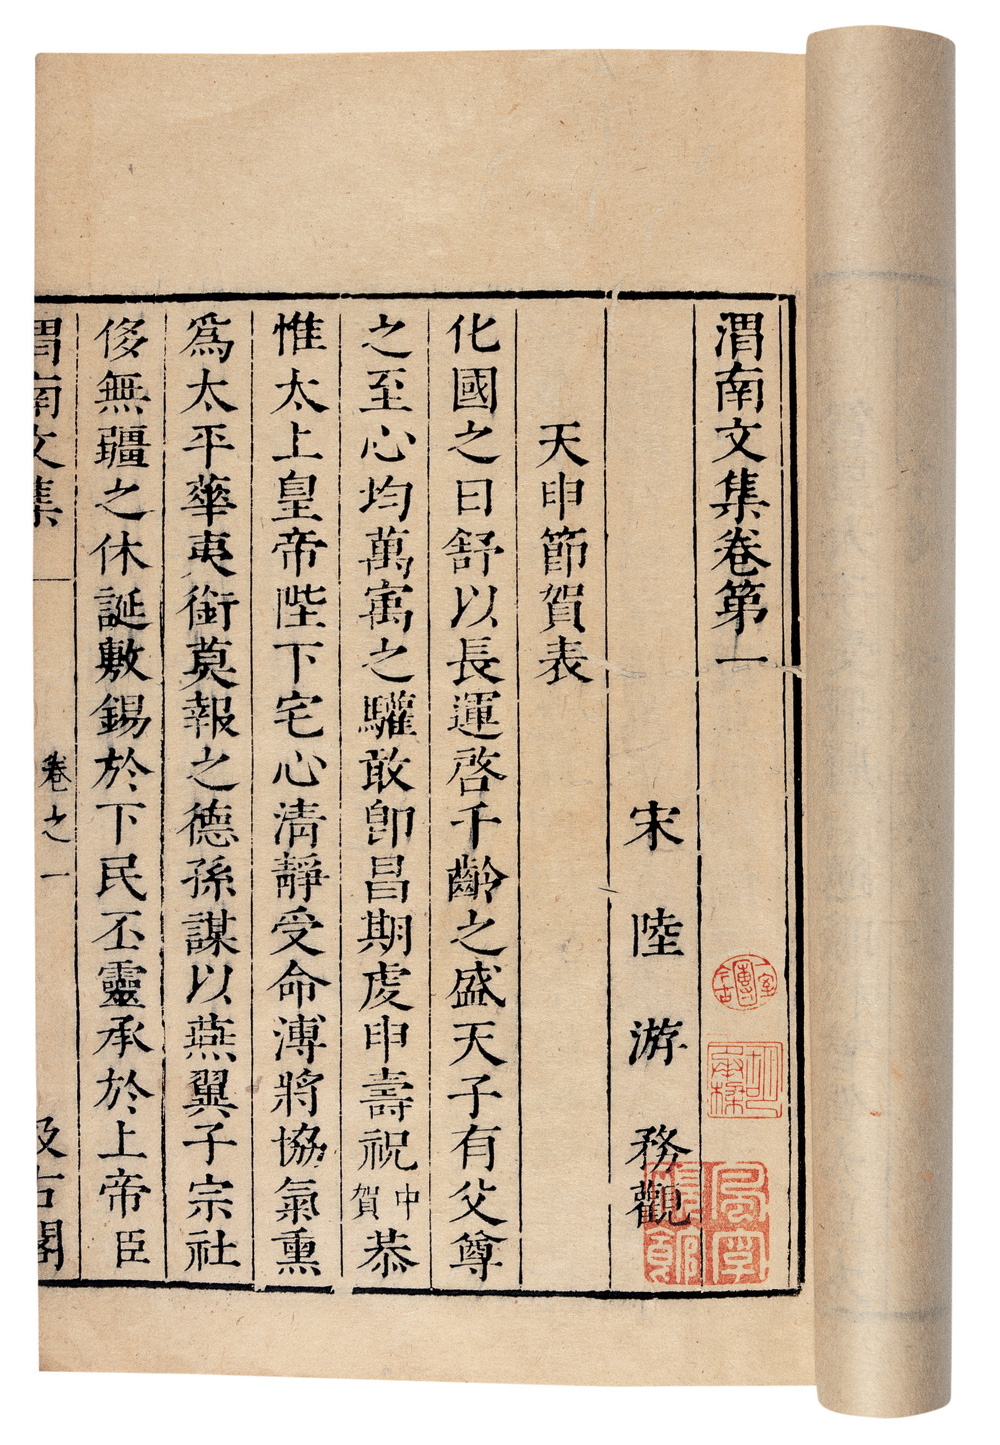 渭南文集卷第一
宋 陸 游 務觀
天申節賀表
化國之日舒以長運啓千齡之盛天子有父尊
之至心均萬寓之驩敢卽昌期虔申壽祝中賀恭
惟太上皇帝陛下宅心淸靜受命溥將協氣熏
爲太平華夷銜莫報之德孫謀以燕翼子宗社
侈無疆之休誕敷錫於下民丕靈承於上帝臣
渭南文集 卷之一 汲古閣